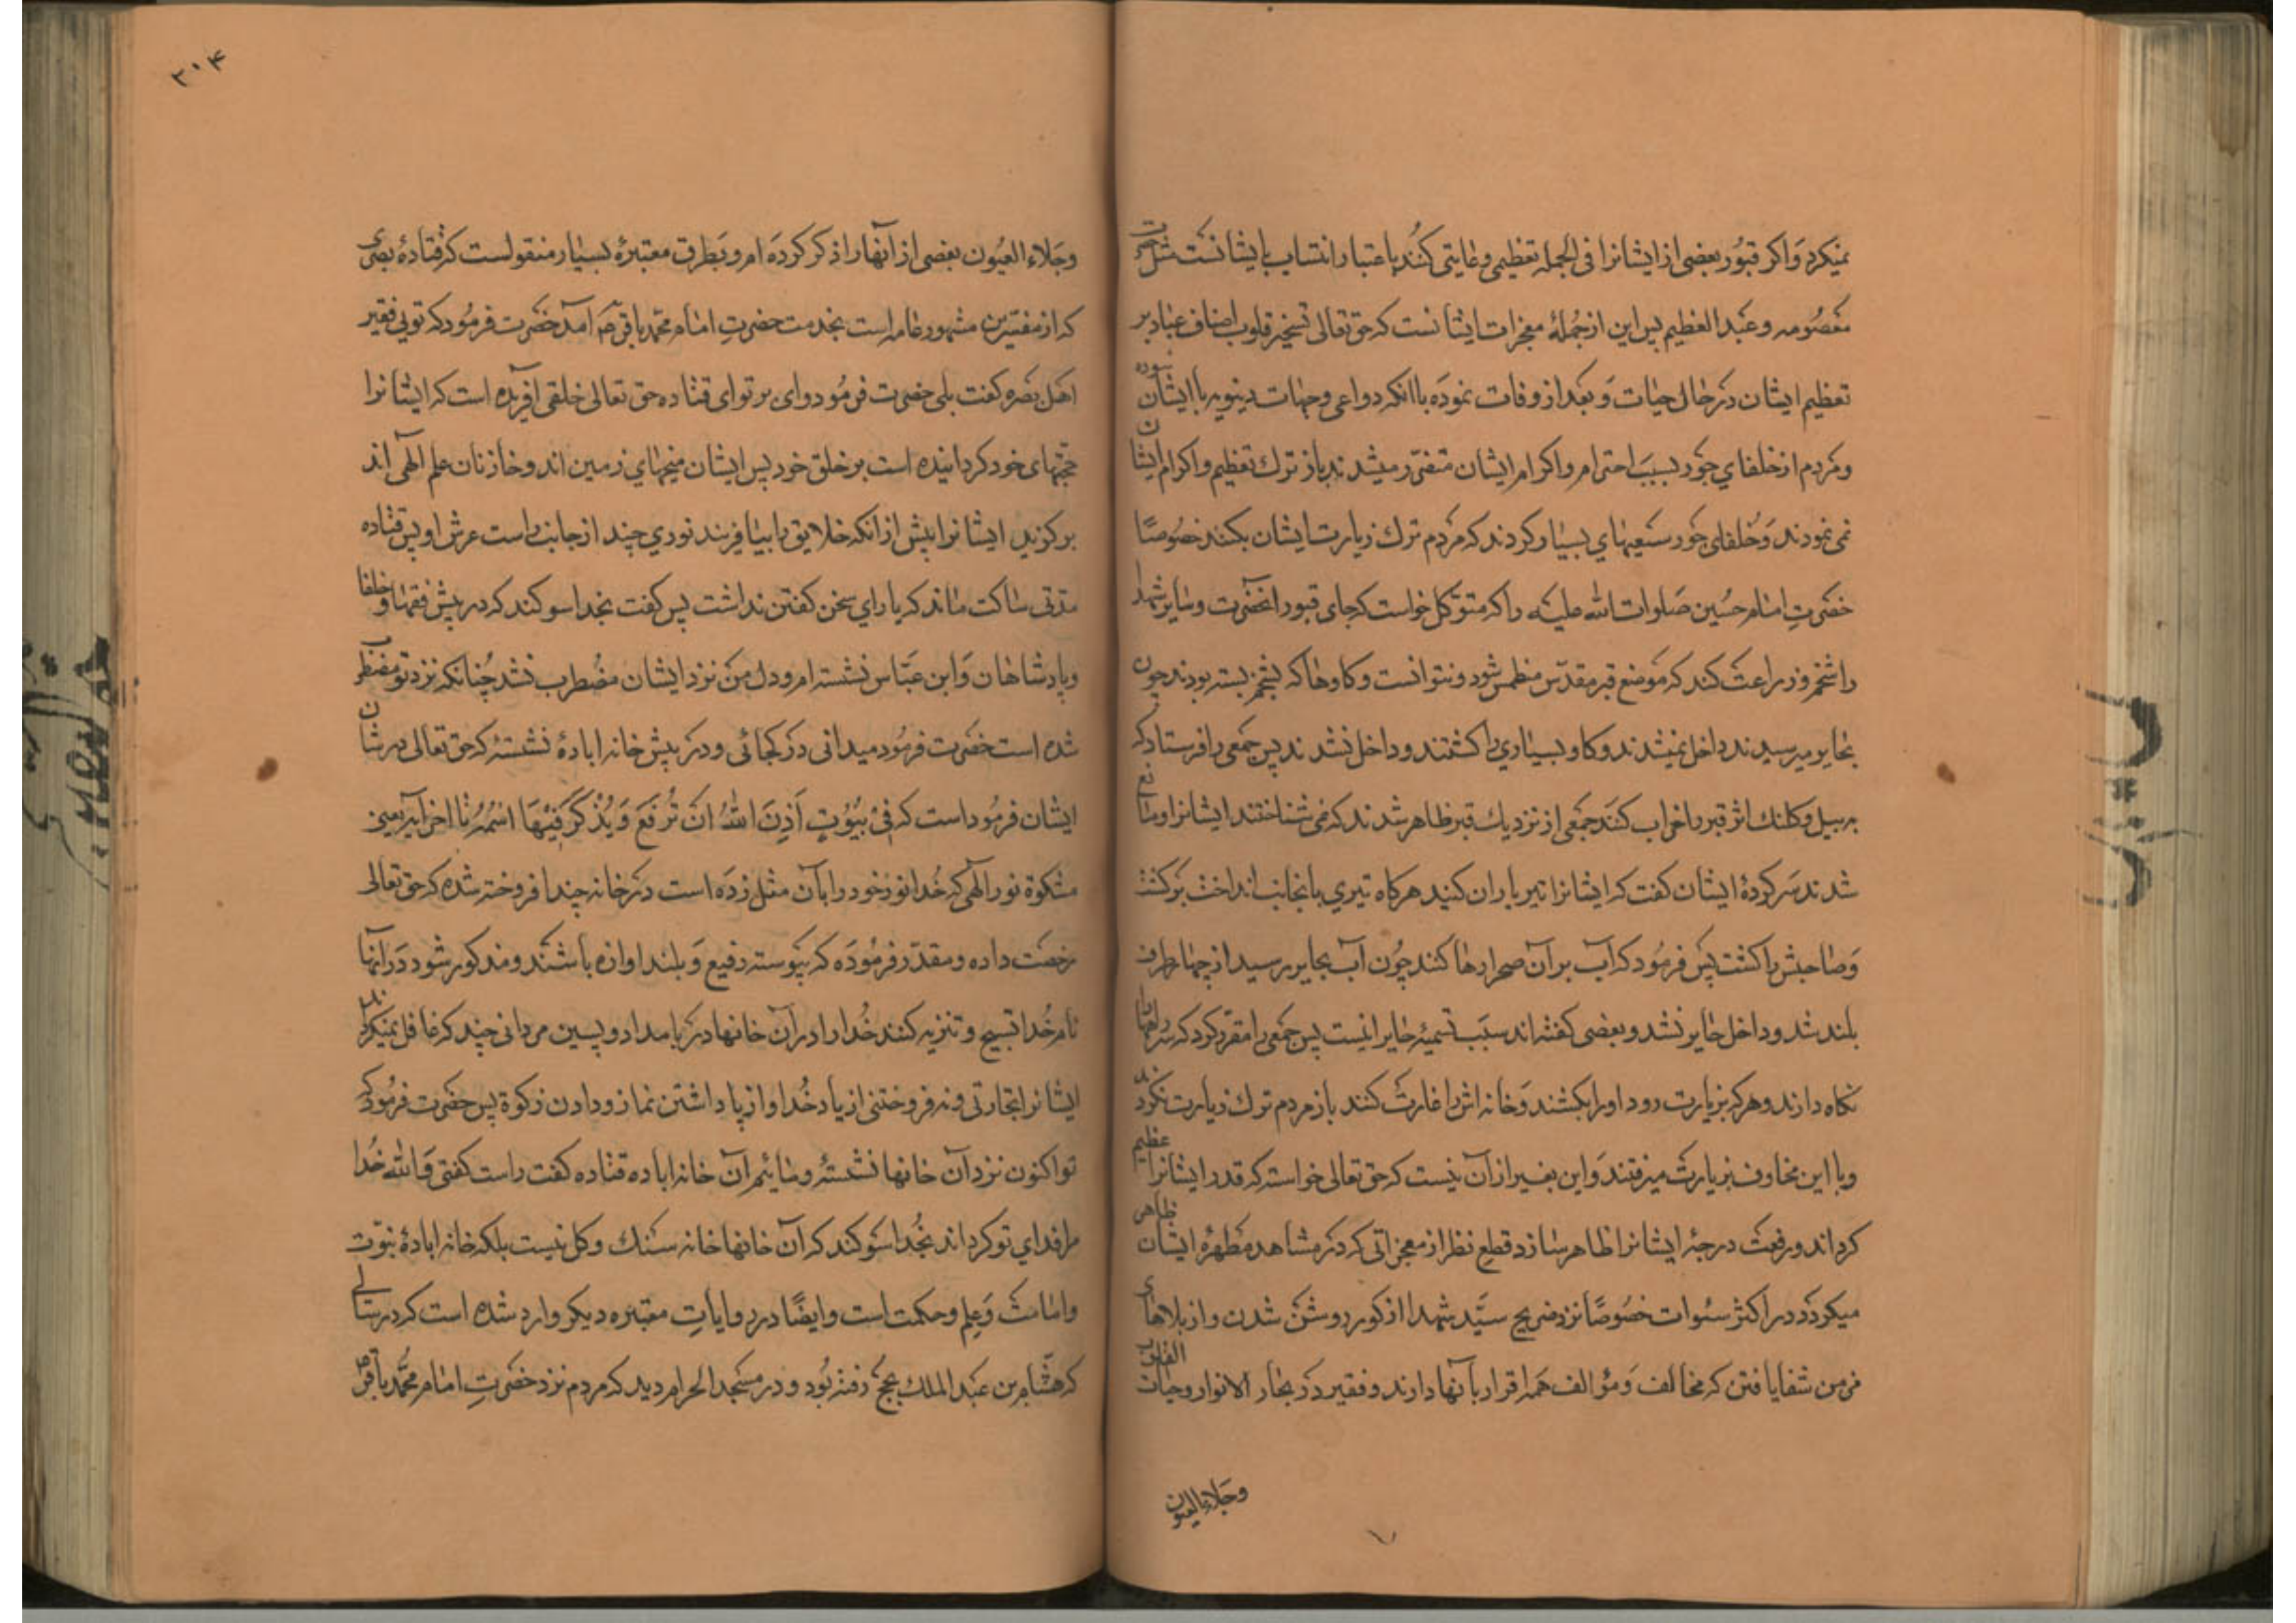 نمیکرد وَاکر قبُور بعضی از ایشانرا فی الجمله تعظیمی و رعایتی کنُند باعتبار انتساب بایشانست مثل حضرت
معصُومه و عبَد العظیم پس این از جُملهٔ معجزات ایشانست که حق تعالی تسخیر قلوب اصناف عباد بر
تعظیم ایشان دَر حال حیات وَ بعَد از وفات نموَده با انکه دواعی وجهات دینویه با ایشان نبوده
و مَردم از خلفای جَور بسبَب احترام و اکرام ایشان متضرّر میشدند باز ترك تعظیم و اکرام ایشان
نمی نمودند وَ خُلفای جَور سَعیهای بسیار کردند که مَردم ترك زیارت ایشان بکنند خصُوصًا
حضَرتِ امام حسُین صَلوات الله علیَه را که متوّکل خواست که جای قبور انحضَرت و سایر شهدا
را شخم و زراعَت کند که مَوضع قبر مقدّس منطمس شود و نتوانست و کاوها که بشخم بسته بودند چون
بحایر میرسیدند داخل نمیشدند و کاو بسیاری را کشتند و داخل نشدند پس جمَعی را فرستاد که
ببیل و کلنك اثر قبر را خراب کنَند جمَعی از نزدیك قبر ظاهر شدند که نمی شناختند ایشانرا و مانع
شدند سَرکردهٔ ایشان کفت که ایشانرا تیر باران کنید هرکاه تیری بانجانب انداخت برکشت
وَ صاحبش را کشت پس فرمُود که آب بر آن صحرا رها کنند چُون آب بحایر رسید از چهار طرف
بلند شد و داخل حایر نشد و بعضی کفته اند سبَب تسمیهٔ حایر اینست پس جمَعی را مقرّر کرد که سر راهها را
نکاه دارند و هرکه بزیارت رود او را بکشند وَ خانه اش را غارت کنند باز مردم ترك زیارت نکردند
و با این مخاوف بزیارت میرفتند وَ این بغیر از آن نیست که حق تعالی خواسته که قدر ایشانرا عظیم
کرداند و رفعَت درجهٔ ایشانرا ظاهر سازد قطع نظر از معجزاتی که دَر مشاهد مَطهرهٔ ایشان ظاهر
میکردَد در اکثر سَنوات خصُوصًا نزد ضریح سیّد شهدا از کور روشَن شدن و از بلاهای
مزمن شفا یافتن که مخالف وَ مؤالف همَه اقرار بآنها دارند و فقیر دَر بحار الانوار و حیات القلوب
وجَلاء العیون
۲۰۴
وجَلاء العیُون بعضی از آنها را ذکر کردَه ام و بَطرق معتبرهٔ بسیار منقولست که قتادهٔ بصری
که از مفسّرین مشهور عامه است بخدمت حضرتِ امام محمّد باقر ص آمد حضَرت فرمُود که توئی فقیر
اهَل بصَره کفت بلی حضرت فرمُود وای بر تو ای قتاده حق تعالی خلقی افریده است که ایشانرا
حجّتهای خود کردانیده است بر خلق خود پس ایشان میخهای زمین اند و خازنان علم الٓهی اند
برکزید ایشانرا پیش از انکه خلایق را بیافریند نوری چند از جانب راست عرش او پس قتاده
مدّتی ساکت ماند که یارای سخن کفتن نداشت پس کفت بخدا سوکند که در پیش فقها و خلفا
و پادشاهان وَ ابن عبّاس نشسته ام و دل من نزد ایشان مضُطرب نشد چُنانکه نزد تو مضطرب
شده است حضَرت فرمُود میدانی دَر کجائی و در پیش خانه ابادهٔ نشستهٔ که حق تعالی در شان
ایشان فرمُوداست که فی بیُوُتٍ اَذِنَ اللهُ اَن تُرفَعَ وَ یُذکَرَ فیهَا اسمُهُ تا اخر آیه یعنی
مشکوة نور الٓهی که خُدا نور خود را بآن مثل زدَه است دَر خانه چند افروخته شده که حق تعالی
رخصَت داده و مقدّر فرمُودَه که پیوسته رفیع وَ بلند اوازه باشند و مذکور شود دَر آنها
نام خُدا تسبیح و تنزیه کنند خُدا را در آن خانها در بامداد و پسین مردانی چند که غافل نمیکرداند
ایشانرا تجارتی و نه فروختنی از یاد خُدا و از بپا داشتن نماز و دادن زکوة پس حضَرت فرمُود که
تو اکنون نزد آن خانها نشستهٔ و مائیم آن خانه اباده قتاده کفت راست کفتی وَ الله خُدا
مرا فدای تو کرداند بخُدا سَوکند که آن خانها خانه سَنك و کل نیست بلکه خانه ابادهٔ نبوّت
و امامت وَ علِم و حکمت است و ایضًا در روایات معتبره دیکر وارد شده است که در سالی
که هشّام بن عبَد الملك بحجّ رفته بُود و در مسَجد الحرام دید که مَردم نزد حضَرتِ امام محمّد باقر ص